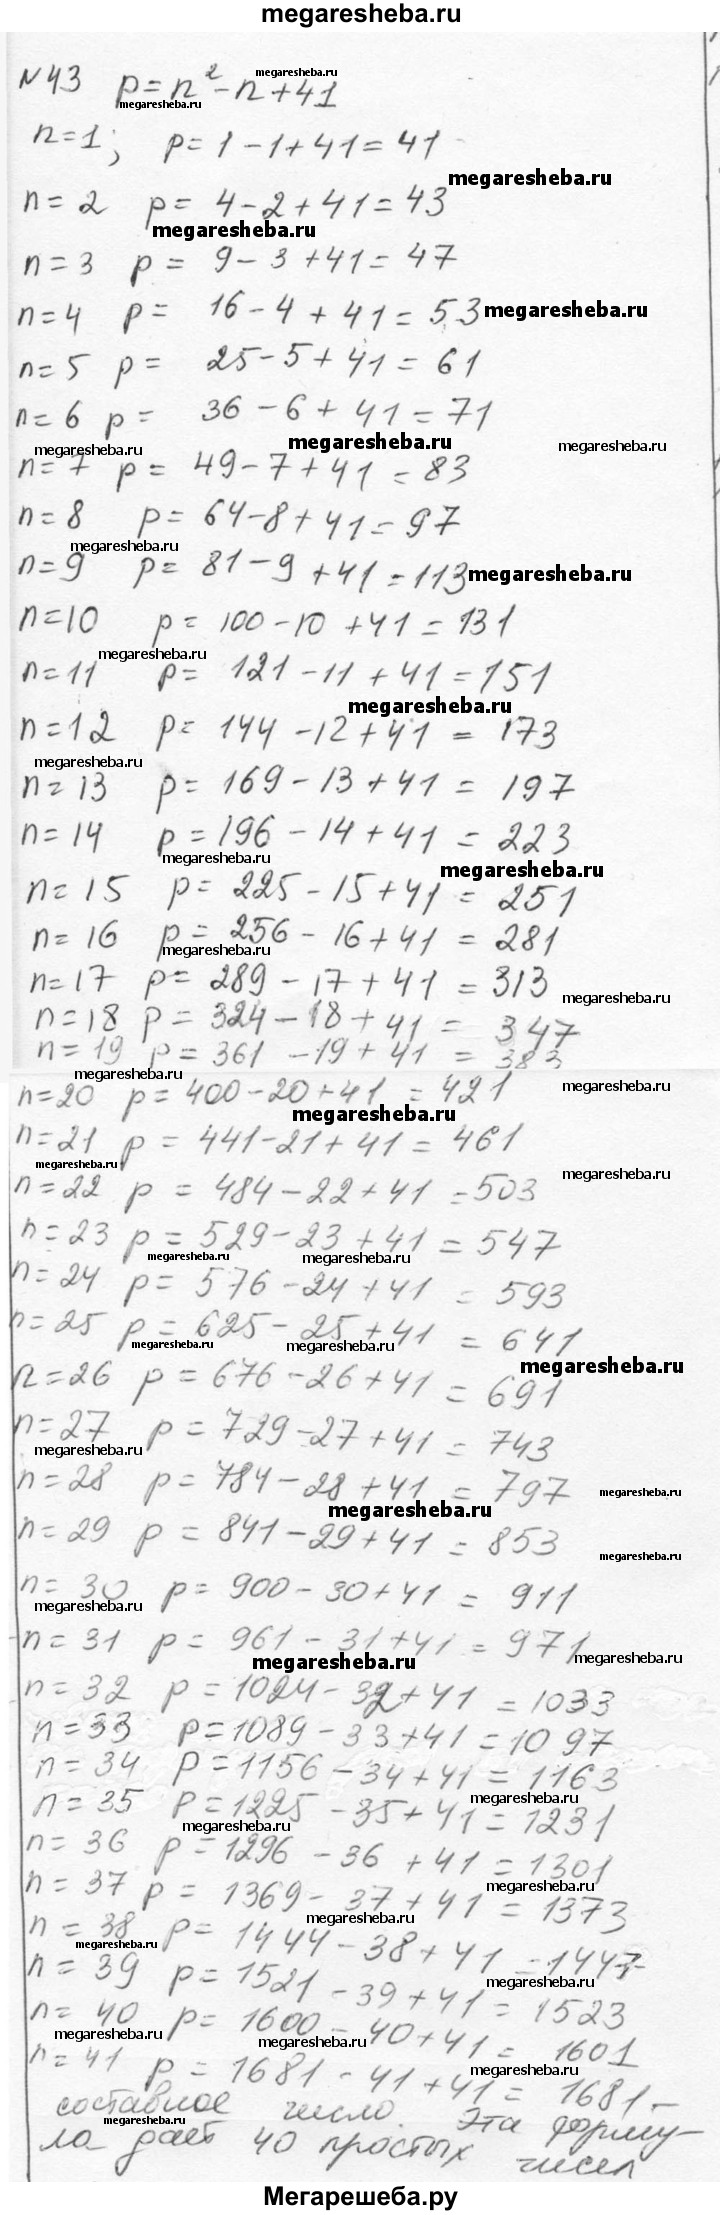 megaresheba.ru
№43 p=n²-n+41
n=1; p=1-1+41=41
n=2 p=4-2+41=43
n=3 p=9-3+41=47
n=4 p=16-4+41=53
n=5 p=25-5+41=61
n=6 p=36-6+41=71
n=7 p=49-7+41=83
n=8 p=64-8+41=97
n=9 p=81-9+41=113
n=10 p=100-10+41=131
n=11 p=121-11+41=151
n=12 p=144-12+41=173
n=13 p=169-13+41=197
n=14 p=196-14+41=223
n=15 p=225-15+41=251
n=16 p=256-16+41=281
n=17 p=289-17+41=313
n=18 p=324-18+41=347
n=19 p=361-19+41=383
n=20 p=400-20+41=421
n=21 p=441-21+41=461
n=22 p=484-22+41=503
n=23 p=529-23+41=547
n=24 p=576-24+41=593
n=25 p=625-25+41=641
n=26 p=676-26+41=691
n=27 p=729-27+41=743
n=28 p=784-28+41=797
n=29 p=841-29+41=853
n=30 p=900-30+41=911
n=31 p=961-31+41=971
n=32 p=1024-32+41=1033
n=33 p=1089-33+41=1097
n=34 p=1156-34+41=1163
n=35 p=1225-35+41=1231
n=36 p=1296-36+41=1301
n=37 p=1369-37+41=1373
n=38 p=1444-38+41=1447
n=39 p=1521-39+41=1523
n=40 p=1600-40+41=1601
n=41 p=1681-41+41=1681-
составное число. Эта форму-
ла дает 40 простых чисел
Мегарешеба.ру